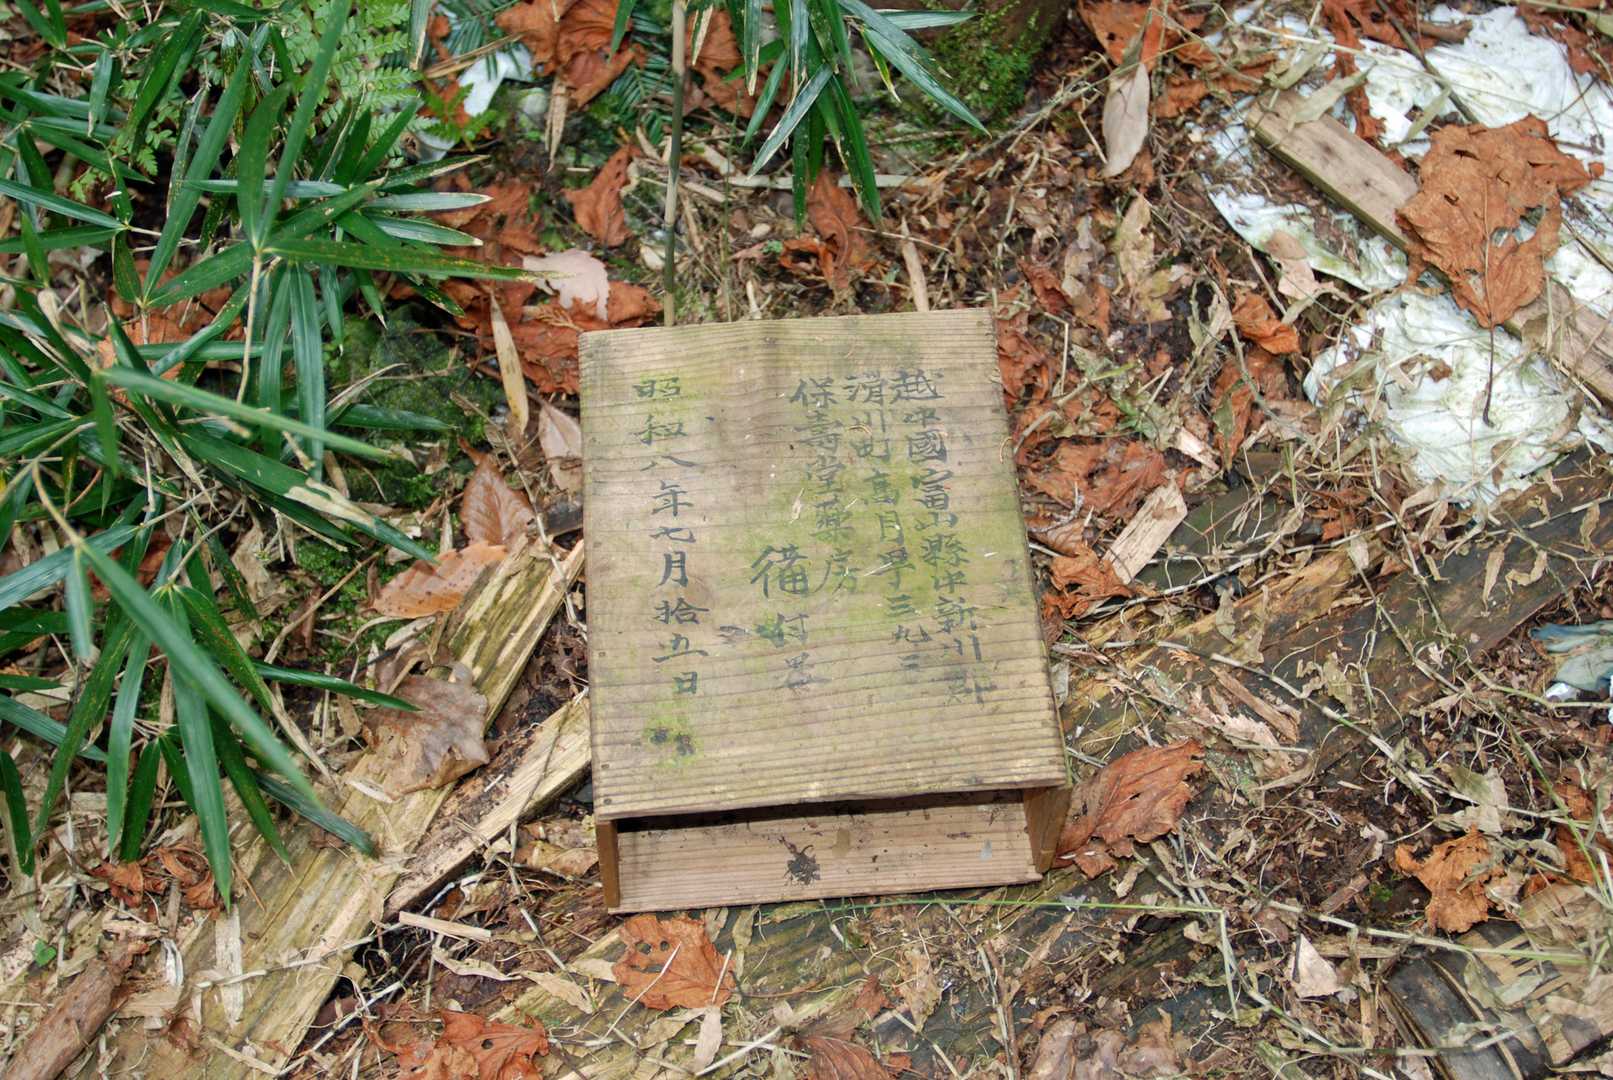 越中國富山縣中新川郡
滑川町高月第三九三
保壽堂藥房
備付置
昭和八年七月拾五日